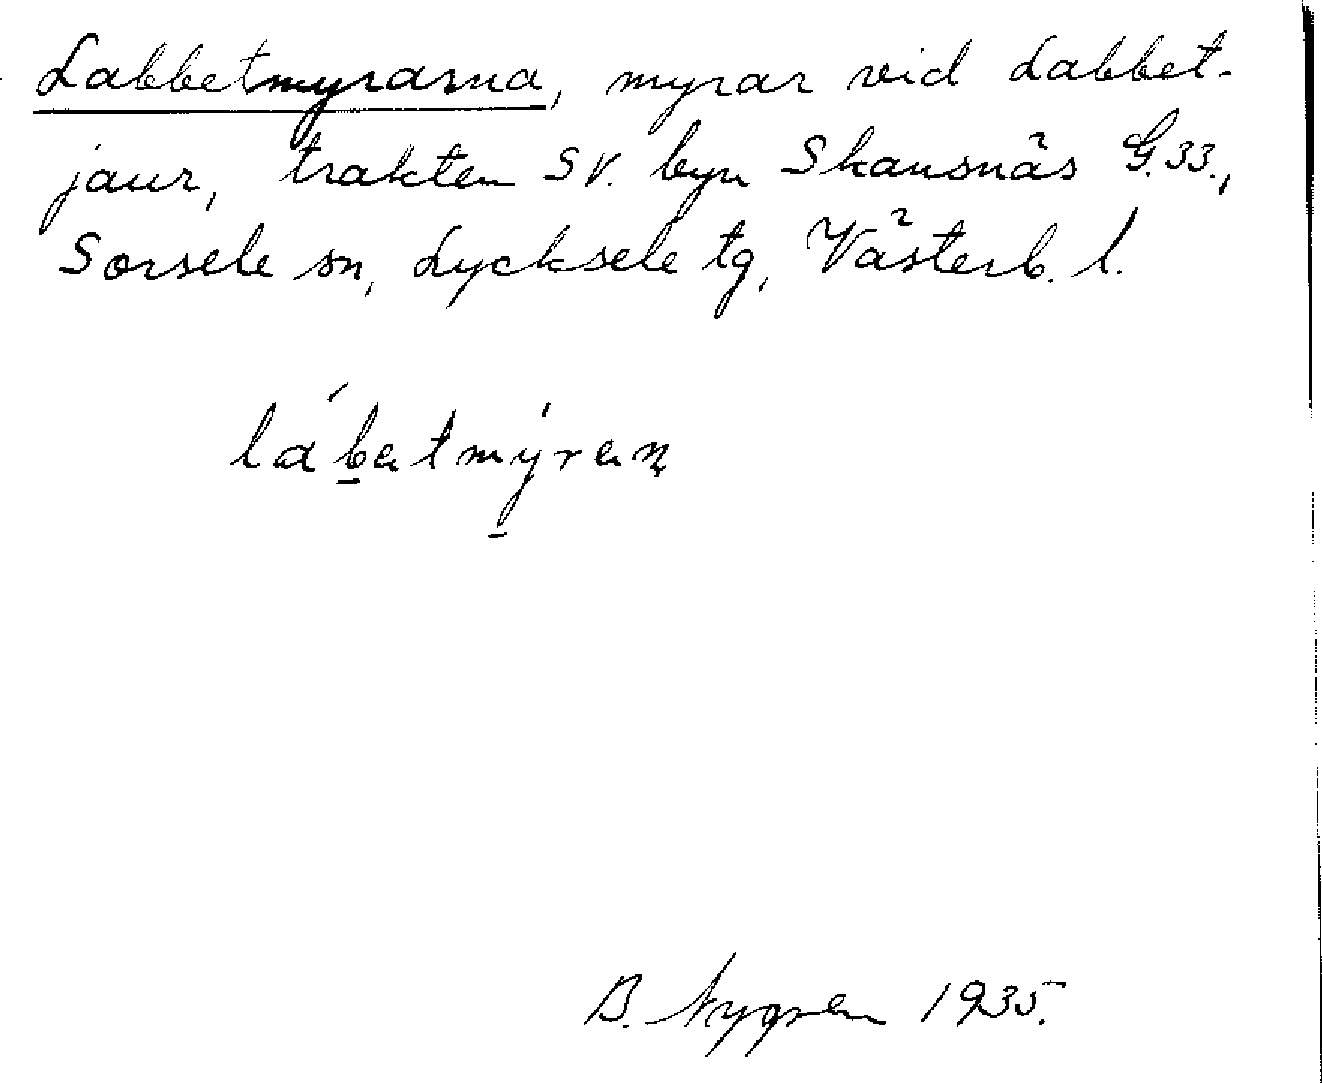 Labbetmyrarna, myrar vid Labbet-
jaur, trakten SV. byn Skansnäs G.33.,
Sorsele sn, Lycksele tg, Västerb. l.
lábetmýraṇ
B. Nygren 1935.